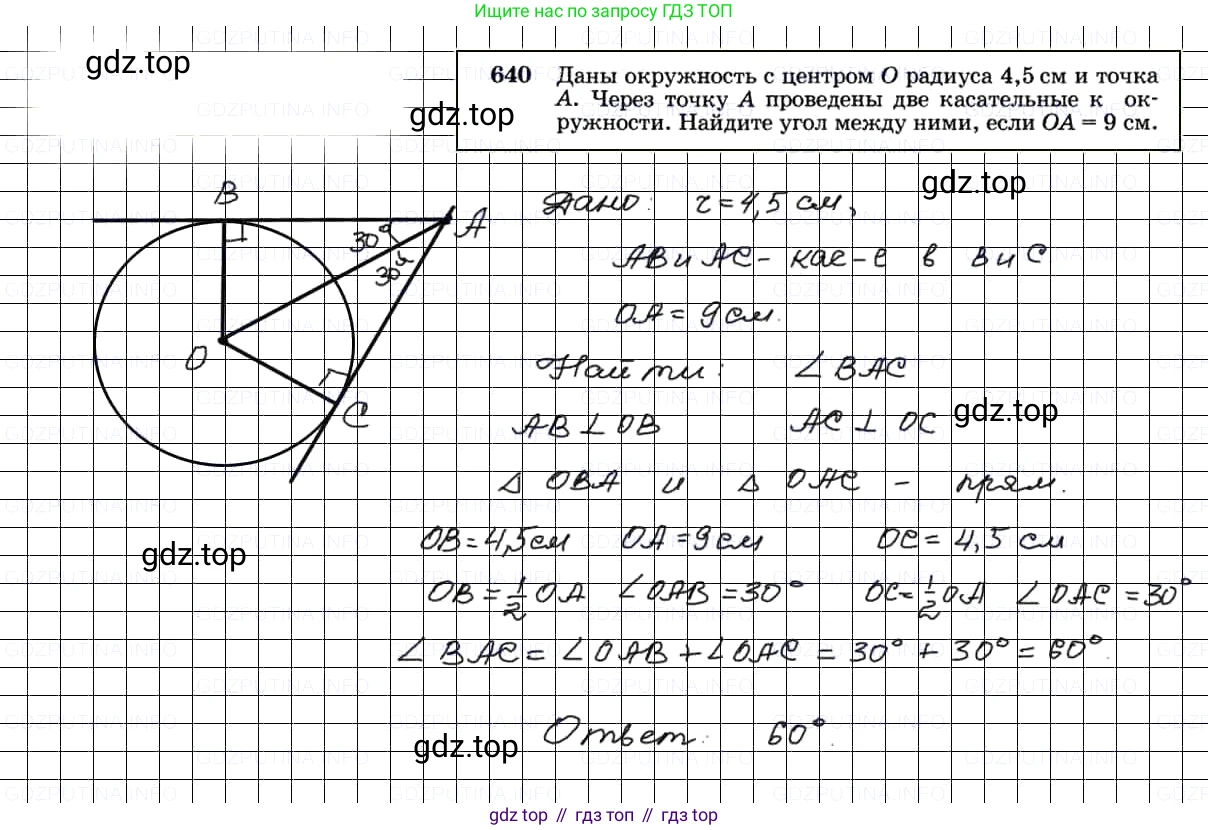 Ищите нас по запросу ГДЗ ТОП
gdz.top
640 Даны окружность с центром O радиуса 4,5 см и точка
A. Через точку A проведены две касательные к ок-
ружности. Найдите угол между ними, если OA = 9 см.
gdz.top
gdz.top
Дано: r = 4,5 см,
AB и AC - кас-е в B и C
OA = 9 см.
Найти: ∠BAC
gdz.top
AB ⊥ OB AC ⊥ OC
Δ OBA и Δ OAC - прям.
OB = 4,5 см OA = 9 см OC = 4,5 см
gdz.top
OB = 1/2 OA ∠OAB = 30° OC = 1/2 OA ∠OAC = 30°
∠BAC = ∠OAB + ∠OAC = 30° + 30° = 60°.
gdz.top
Ответ: 60°.
B
A
30°
30°
O
C
GDZPUTINA.INFO
gdz top // гдз топ // gdz top